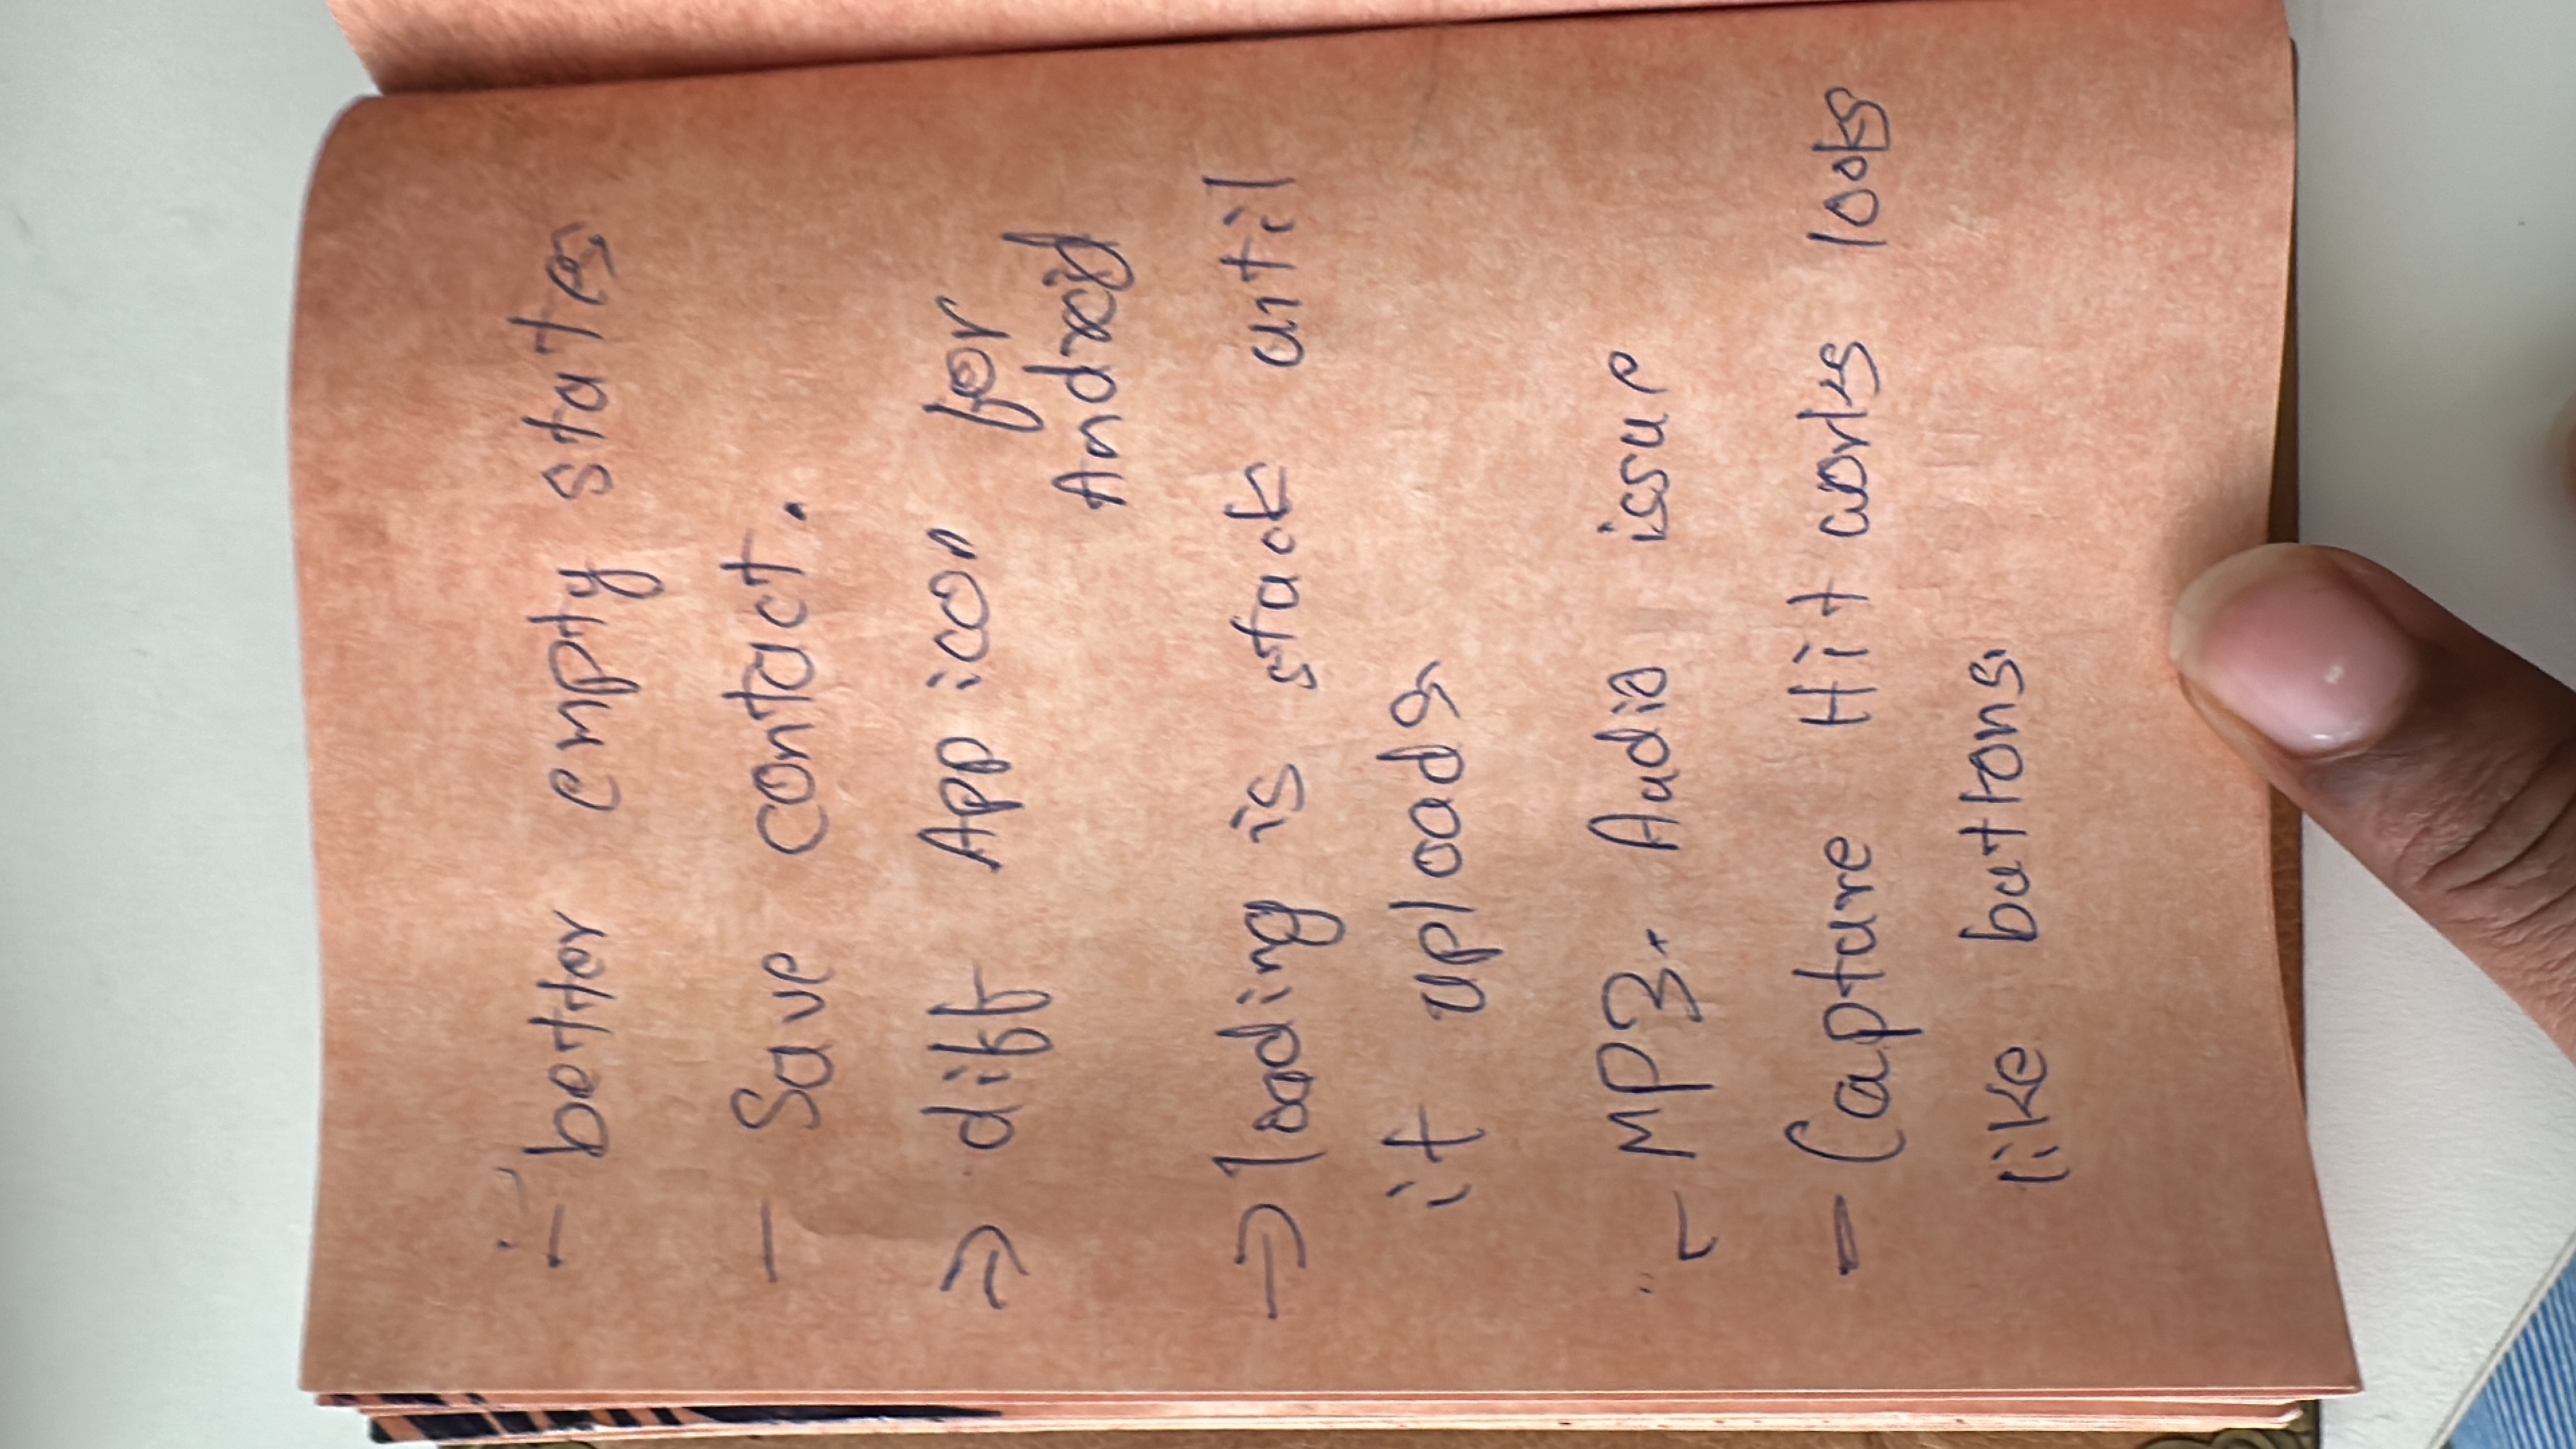 - better empty states
- Save contact.
→ diff App icon for
Android
→ loading is stuck until
it uploads
- MP3. Audio issue
- Capture Hit works looks
like buttons